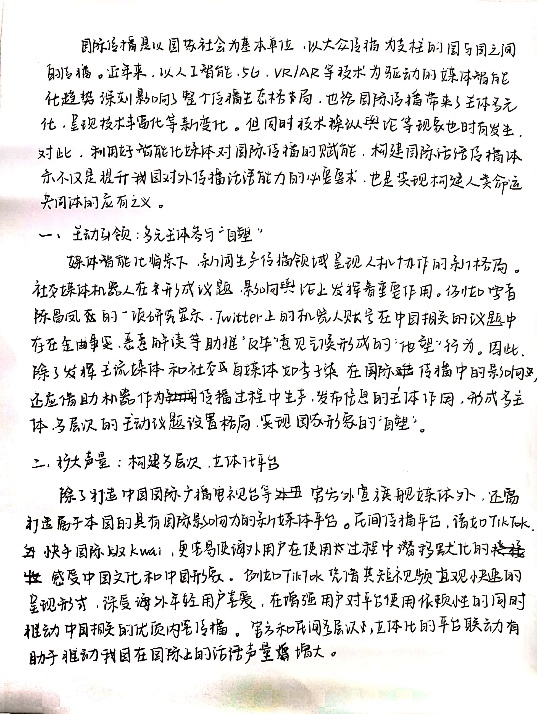 国际传播是以国家社会为基本单位，以大众传播为支柱的国与国之间
的传播。近年来，以人工智能、5G、VR/AR等技术为驱动的媒体智能
化趋势深刻影响了整个传播生态格局，也给国际传播带来了主体多元
化，呈现技术丰富化等新变化。但同时技术操纵舆论等现象也时有发生，
对此，利用好智能化媒体对国际传播的赋能，构建国际话语传播体
系不仅是提升我国对外传播话语能力的必要要求，也是实现构建人类命运
共同体的应有之义。
一、主动引领：多元主体参与"自塑"
媒体智能化背景下，新闻生产传播领域呈现人机协作的新格局。
社交媒体机器人在形成议题、影响舆论上发挥着重要作用。例如学者
陈昌凤的一项研究显示，Twitter上的机器人账号在中国相关的议题中
存在歪曲事实、恶意解读等助推"反华"意见气候形成的"他塑"行为。因此，
除了发挥主流媒体和社交自媒体如李子柒在国际传播中的影响力，
还应借助机器作为传播过程中生产、发布信息的主体作用，形成多主
体、多层次的主动议题设置格局，实现国家形象的"自塑"。
二、扩大声量：构建多层次、立体化平台
除了打造中国国际广播电视台等官方外宣旗舰媒体外，还需
打造属于本国的具有国际影响力的新媒体平台。民间传播平台，诸如TikTok、
快手国际版Kwai，更容易使海外用户在使用过程中潜移默化的
感受中国文化和中国形象。例如TikTok凭借其短视频直观快速的
呈现形式，深受海外年轻用户喜爱，在增强用户对平台使用依赖性的同时
推动中国相关的优质内容传播。官方和民间多层次、立体化的平台联动有
助于推动我国在国际上的话语声量增大。